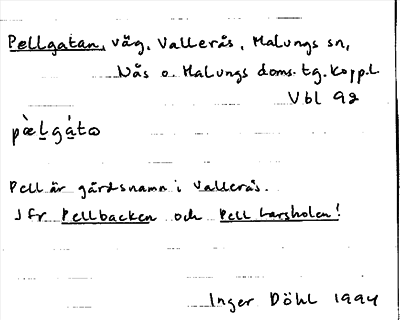 Pellgatan, väg, Vallerås, Malungs sn,
Nås o. Malungs doms. tg. Kopp. l.
Vbl 92
pæ̀lgáta
Pell är gårdsnamn i Vallerås.
Jfr Pellbacken och Pell Larsholen!
Inger Döhl 1994